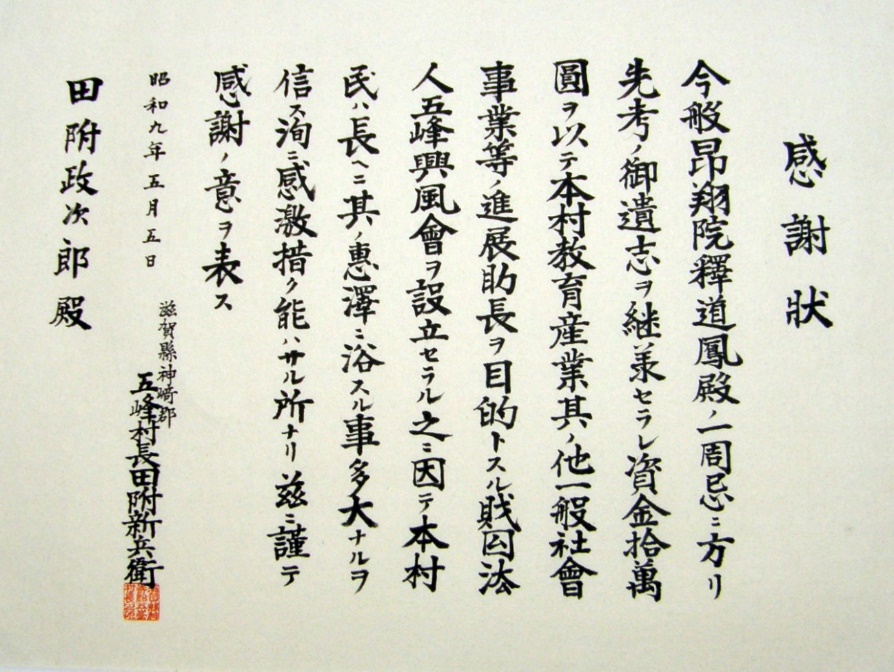 感謝狀
今般昂翔院釋道鳳殿ノ一周忌ニ方リ
先考ノ御遺志ヲ継承セラレ資金拾萬
圓ヲ以テ本村教育産業其ノ他一般社會
事業等ノ進展助長ヲ目的トスル財団法
人五峰興風會ヲ設立セラル之ニ因テ本村
民ハ長ヘニ其ノ惠澤ニ浴スル事多大ナルヲ
信ス洵ニ感激措ク能ハサル所ナリ茲ニ謹テ
感謝ノ意ヲ表ス
昭和九年五月五日
滋賀縣神崎郡
五峰村長田附新兵衛
田附政次郎殿